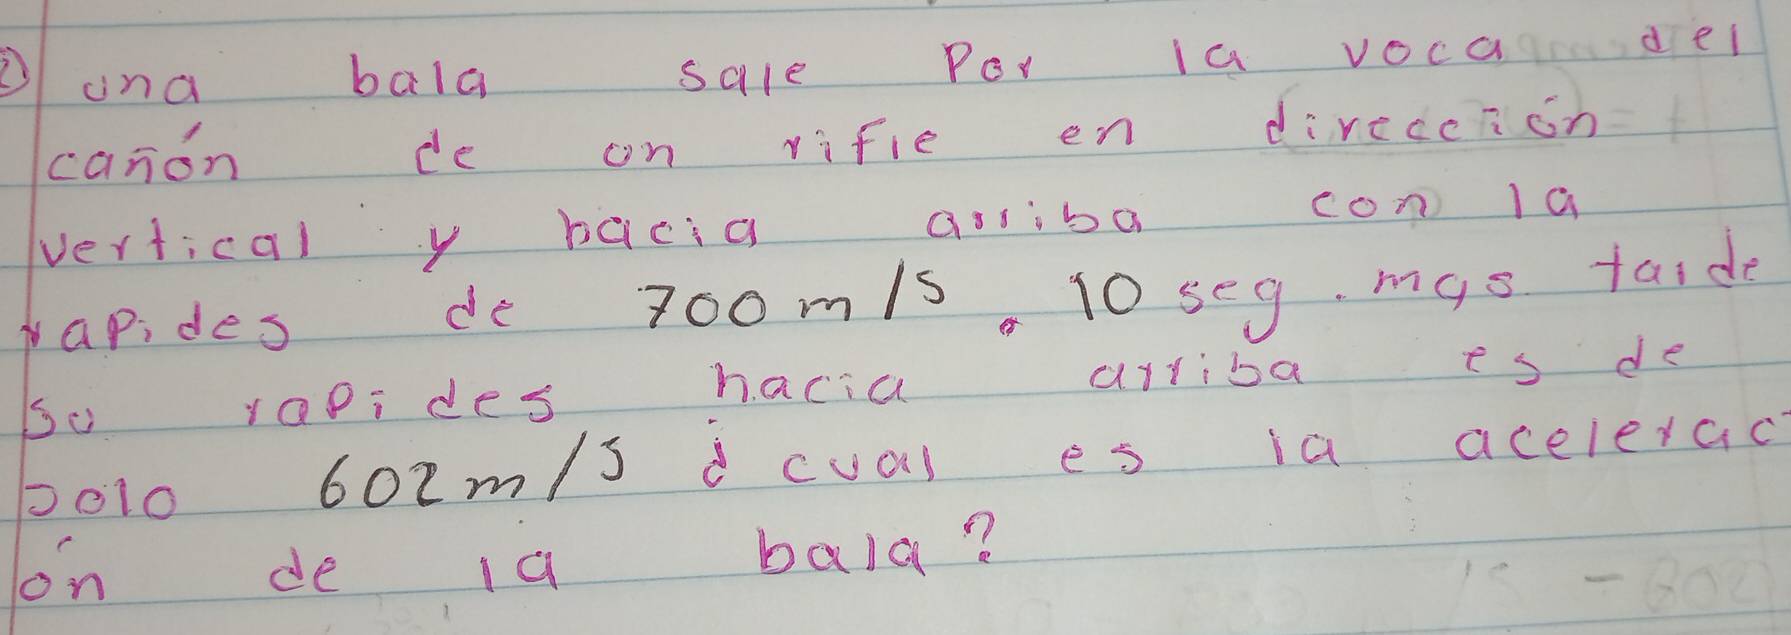 ② una bala sale por la voca del
cañón de un rifle en dirección
vertical y hacia arriba con la
rapides de 700 m/s. 10 seg. mas tarde
su rapides hacia arriba es de
solo 602 m/s ¿ cual es la acelerac
ón de la bala?